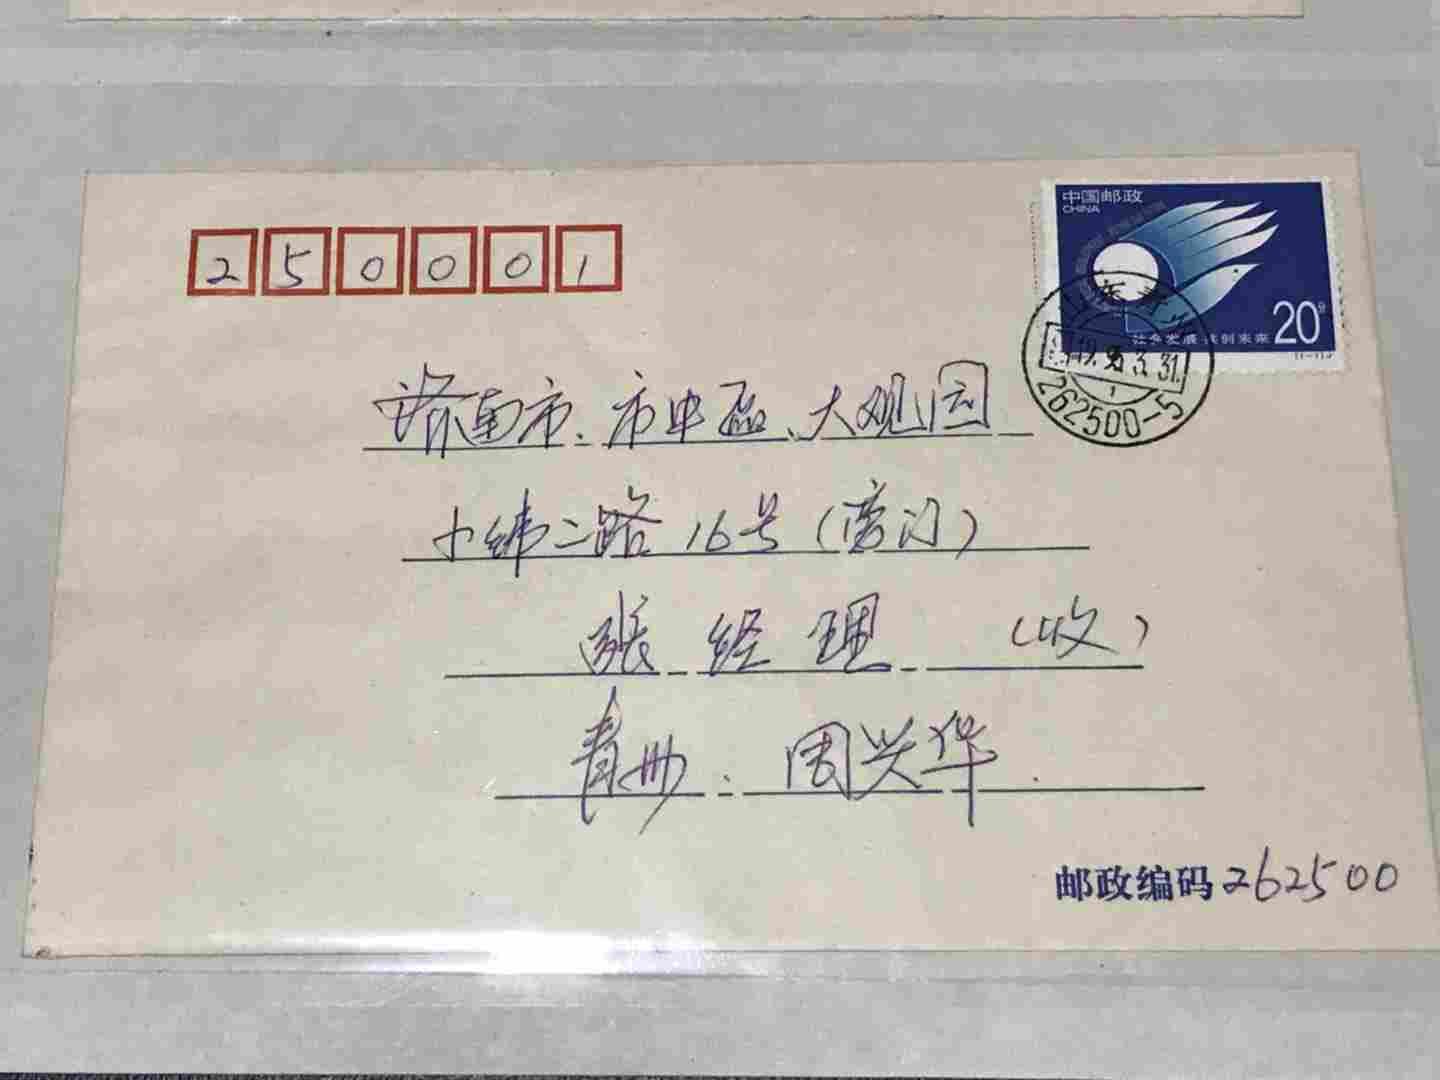 中国邮政
CHINA
250001
20分
社会发展 共创未来
山东青州
1995.3.31
262500-5
济南市、市中区、大观园
小纬二路16号(旁门)
张经理(收)
青州:周兴华.
邮政编码262500